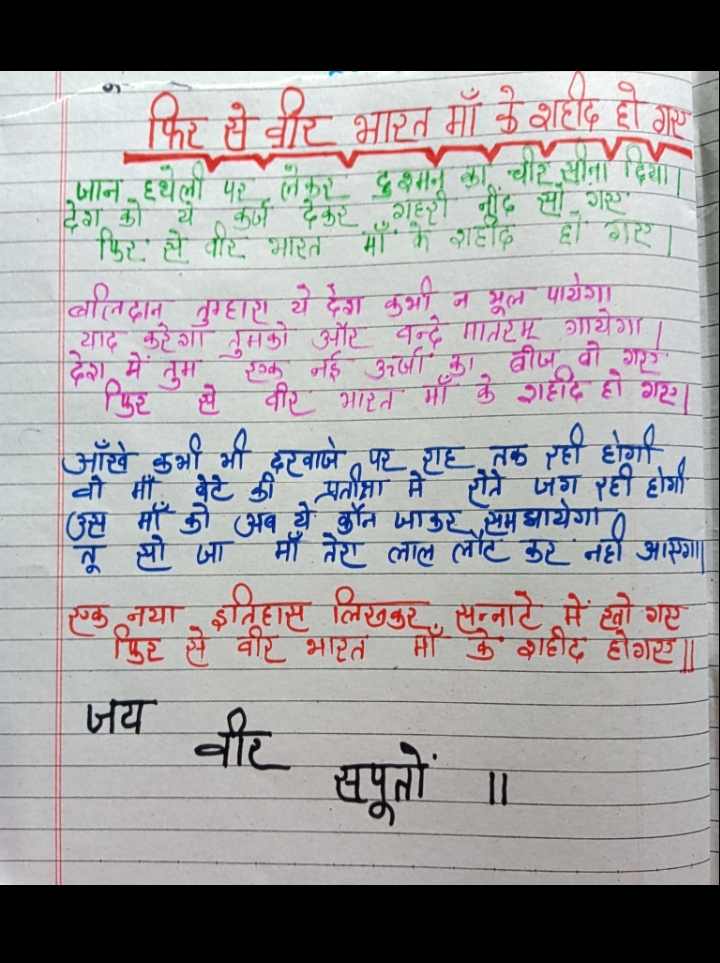 फिर से वीर भारत माँ के शहीद हो गए
जान हथेली पर लेकर दुश्मन का चीर सीना दिया।
देश को ये कर्ज देकर गहरी नींद सो गए
फिर से वीर भारत माँ के शहीद हो गए।
बलिदान तुम्हारा ये देश कभी न भूल पायेगा
याद करेगा तुमको और वन्दे मातरम् गायेगा।
देश में तुम एक नई ऊर्जा का बीज बो गए
फिर से वीर भारत माँ के शहीद हो गए।
आँखे कभी भी दरवाजे पर राह तक रही होगी
वो माँ बेटे की प्रतीक्षा मे रोते जग रही होगी
उस माँ को अब ये कौन जाकर समझायेगा
तू सो जा माँ तेरा लाल लौट कर नही आएगा॥
एक नया इतिहास लिखकर सन्नाटे में खो गए
फिर से वीर भारत माँ के शहीद होगए॥
जय
वीर
सपूतों ॥